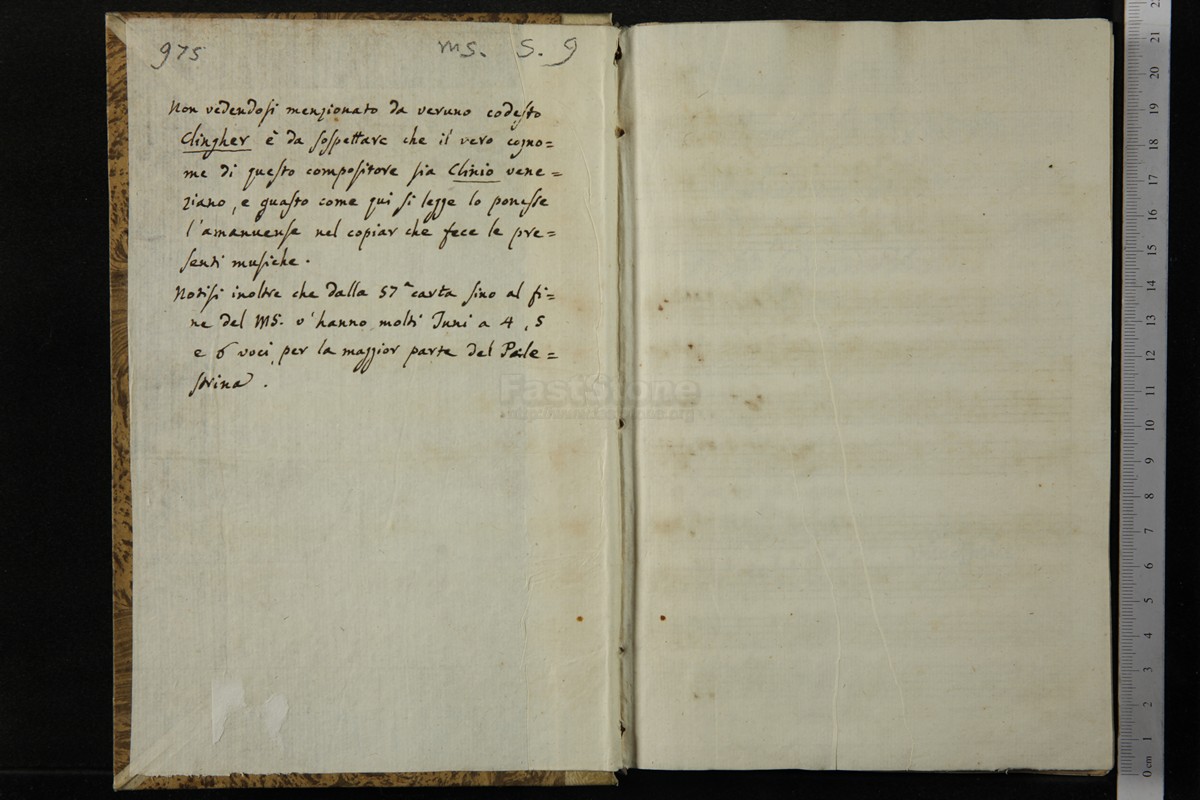 975 MS. S. 9
Non vedendosi menzionato da veruno codesto
Clingher è da sospettare che il vero cogno=
me di questo compositore sia Clinio vene=
ziano, e guasto come qui si legge lo ponesse
l'amanuense nel copiar che fece le pre=
senti musiche.
Notisi inoltre che dalla 57a carta sino al fi=
ne del MS. v'hanno molti Inni a 4, 5
e 6 voci per la maggior parte del Pale=
strina.
FastStone
0 cm 1 2 3 4 5 6 7 8 9 10 11 12 13 14 15 16 17 18 19 20 21